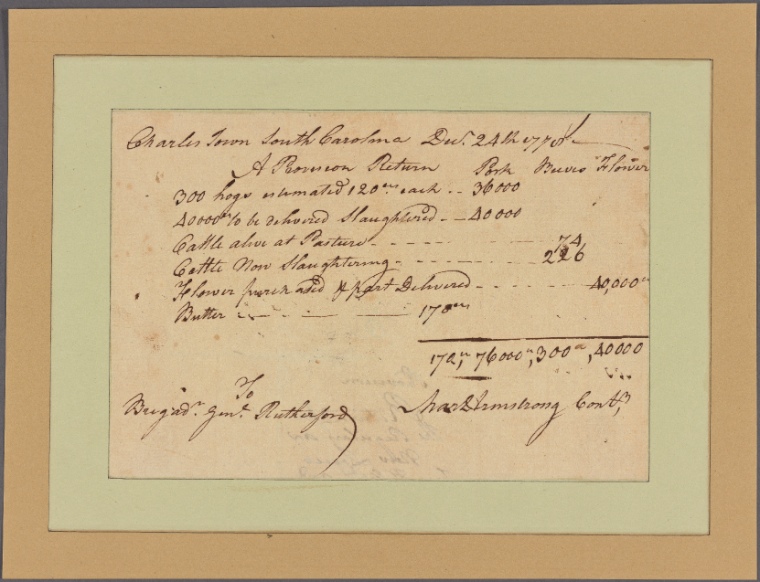 Charles Town South Carolina Decr. 24th 1778
A Provision Return Pork Beeves Flower
300 hogs estimated 120 wt each .. 36000
40000 wt to be delivered Slaughtered - - 40000
Cattle alive at Pasture - - - - - - - - 74
Cattle Now Slaughtering - - - - - - - 226
Flower purchased & part Delivered - - - - - 40,000 wt
Butter - - - - - - 172 wt
172 wt, 76000 wt, 300, 40000
To
Brigadr. Genl. Rutherford
Armstrong